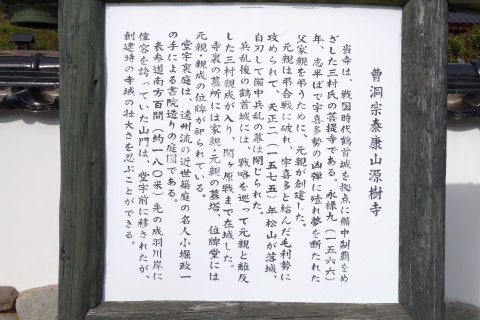 曹洞宗泰康山源樹寺
当寺は、戦国時代鶴首城を拠点に備中制覇をめ
ざした三村氏の菩提寺である。永禄九(一五六六)
年、志半ばで宇喜多勢の凶弾に殪れ夢を断たれた
父家親を弔うために、元親が創建した。
元親は弔合戦に破れ、宇喜多と結んだ毛利勢に
攻められて、天正二(一五七五)年松山が落城、
自刃して備中兵乱の幕は閉じられた。
兵乱後の鶴首城には、戦略を巡って元親と離反
した三村親成が入り、関ヶ原戦まで在城した。
寺裏の墓所には家親・元親の墓塔、位牌堂には
元親・親成の位牌が祀られている。
堂宇裏庭は、遠州流の近世築庭の名人小堀政一
の手による書院造りの庭園である。
表参道南方百間(約一八〇米)先の成羽川岸に
偉容を誇っていた山門は、堂宇前に移されたが、
創建時の寺域の壮大さを忍ぶことができる。